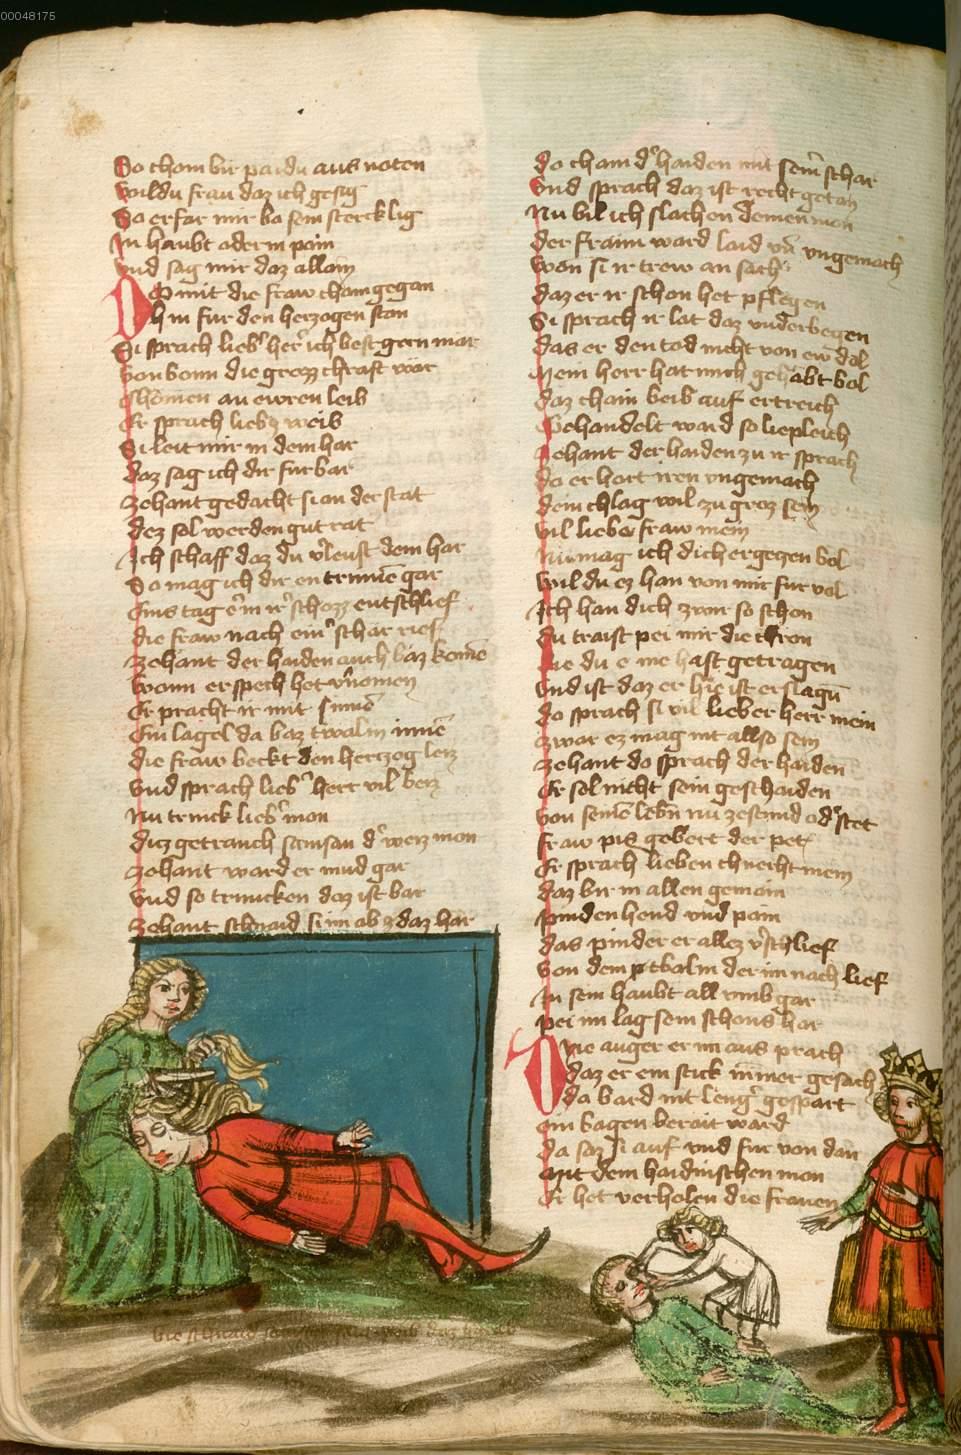 00048175
So chom bir pai du aus noten
Wildu frau daz ich gesig
So erfar mir ba sein sterck lig
In haubt oder in pain
Und sag mir daz allain
Do mit die fraw cham gegan
Hin fur den herzogen stan
Si sprach lieb' her' ich best gern mar
Von bonn die grozz chraft war
Chomen an ewren leib
Er sprach liebz weib
Si leit mir in dem har
Daz sag ich dir fur bar
Zehant gedacht si an der stat
dez sol werden gut rat
Ich schaff daz du v'leust dein har
So mag ich dir entrinnē gar
Eins tag er in ir' schozz entschlief
die fraw nach ein' schar rief
Zehant der haiden auch baz komē
Wann er spech het v'nomen
Er pracht ir mit sinnē
Ein lagel da baz twalm innē
die fraw beckt den hertzog
Und sprach lieb' herr vil
Nu trinck lieb' mon
duz getranch samson d' weiz mon
Zehant ward er mud gar
Und so truncken daz ist bar
Zehant schnaid si im ab daz har
do cham d' haiden mit sein' schar
Und sprach daz ist recht getan
Nu bil ich slachen deinen mon
der frawn ward laid vn̄ ungemach
Won si ir trew an sach
daz er ir schon het pflegen
Si sprach ir lat daz underbegen
das er den tod nicht von ew dol
Mein herr hat mich gehabt bol
daz chain beib auf ertreich
Gehandelt ward so liepleich
Zehant der haiden zu ir sprach
do er hort iren ungemach
dein chlag wil zu groz sein
vil liebew fraw mein
Nu mag ich dich ergezen bol
Wil du ez han von mir fur vol
Ich han dich zwar so schon
du traist pei mir die chron
die du e nie hast getragen
Und ist daz er hie ist erslagn̄
do sprach si vil lieber herr mein
Zwar ez mag nit allso sein
Zehant do sprach der haiden
Er sol nicht sein geschaiden
von seinē lebn̄ nu zestund od' stet
fraw pis gebert der pet
Er sprach lieben chnecht mein
daz bir in allen gemain
pinden hend und pain
das pinden er allez v'schlief
Von dem tbalm der im nach lief
In sein haubt all umb gar
pei im lag sein schons har
Die auger er im aus prach
daz er ein stick nimer gesach
da bard nit leng' gespart
ein bagen berait ward
da saz si auf und fur von dan
Mit dem haidnischen mon
Er het verholen die frauen